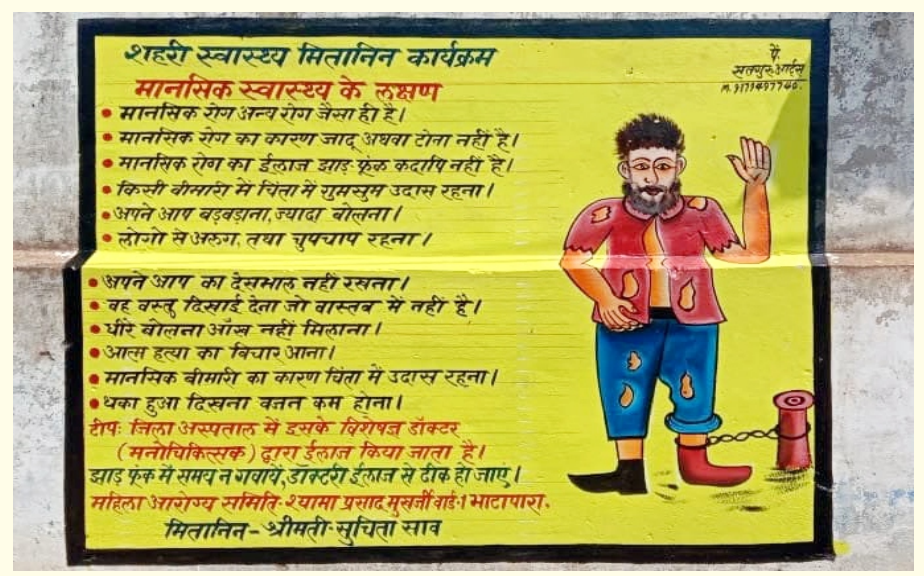 शहरी स्वास्थ्य मितानिन कार्यक्रम
पै.
सतगुरु आर्ट्स
M. 9179497740.
मानसिक स्वास्थ्य के लक्षण
• मानसिक रोग अन्य रोग जैसा ही है।
• मानसिक रोग का कारण जादू अथवा टोना नहीं है।
• मानसिक रोग का ईलाज झाड़ फूंक कदापि नहीं है।
• किसी बीमारी में चिंता में गुमसुम उदास रहना।
• अपने आप बड़बड़ाना, ज्यादा बोलना।
• लोगो से अलग, तथा चुपचाप रहना।
• अपने आप का देखभाल नही रखना।
• वह वस्तु दिखाई देना जो वास्तव में नहीं है।
• धीरे बोलना आँख नहीं मिलाना।
• आत्म हत्या का विचार आना।
• मानसिक बीमारी का कारण चिंता में उदास रहना।
• थका हुआ दिखना वजन कम होना।
टीपः जिला अस्पताल में इसके विशेषज्ञ डॉक्टर
(मनोचिकित्सक) द्वारा ईलाज किया जाता है।
झाड़ फूंक में समय न गवायें, डॉक्टरी ईलाज से ठीक हो जाएं।
महिला आरोग्य समिति-श्यामा प्रसाद मुखर्जी वार्ड-1 भाटापारा.
मितानिन- श्रीमती-सुचिता साव